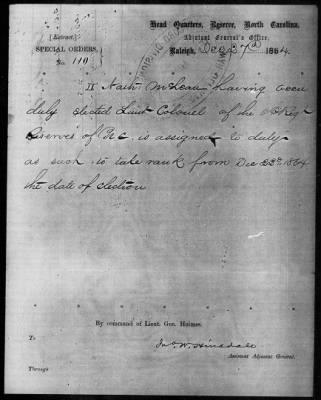 Head Quarters, Reserve, North Carolina,
Adjutant General's Office,
Raleigh, Dec 27th 1864.
[Extract]
SPECIAL ORDERS,
No. 110
II Nath. McLean having been
duly elected Lieut Colonel of the Regt
Reserves of N.C. is assigned to duty
as such to take rank from Dec 23rd 1864
the date of election
By command of Lieut. Gen. Holmes.
To
Jno. W. Hinsdale
Assistant Adjutant General.
Through